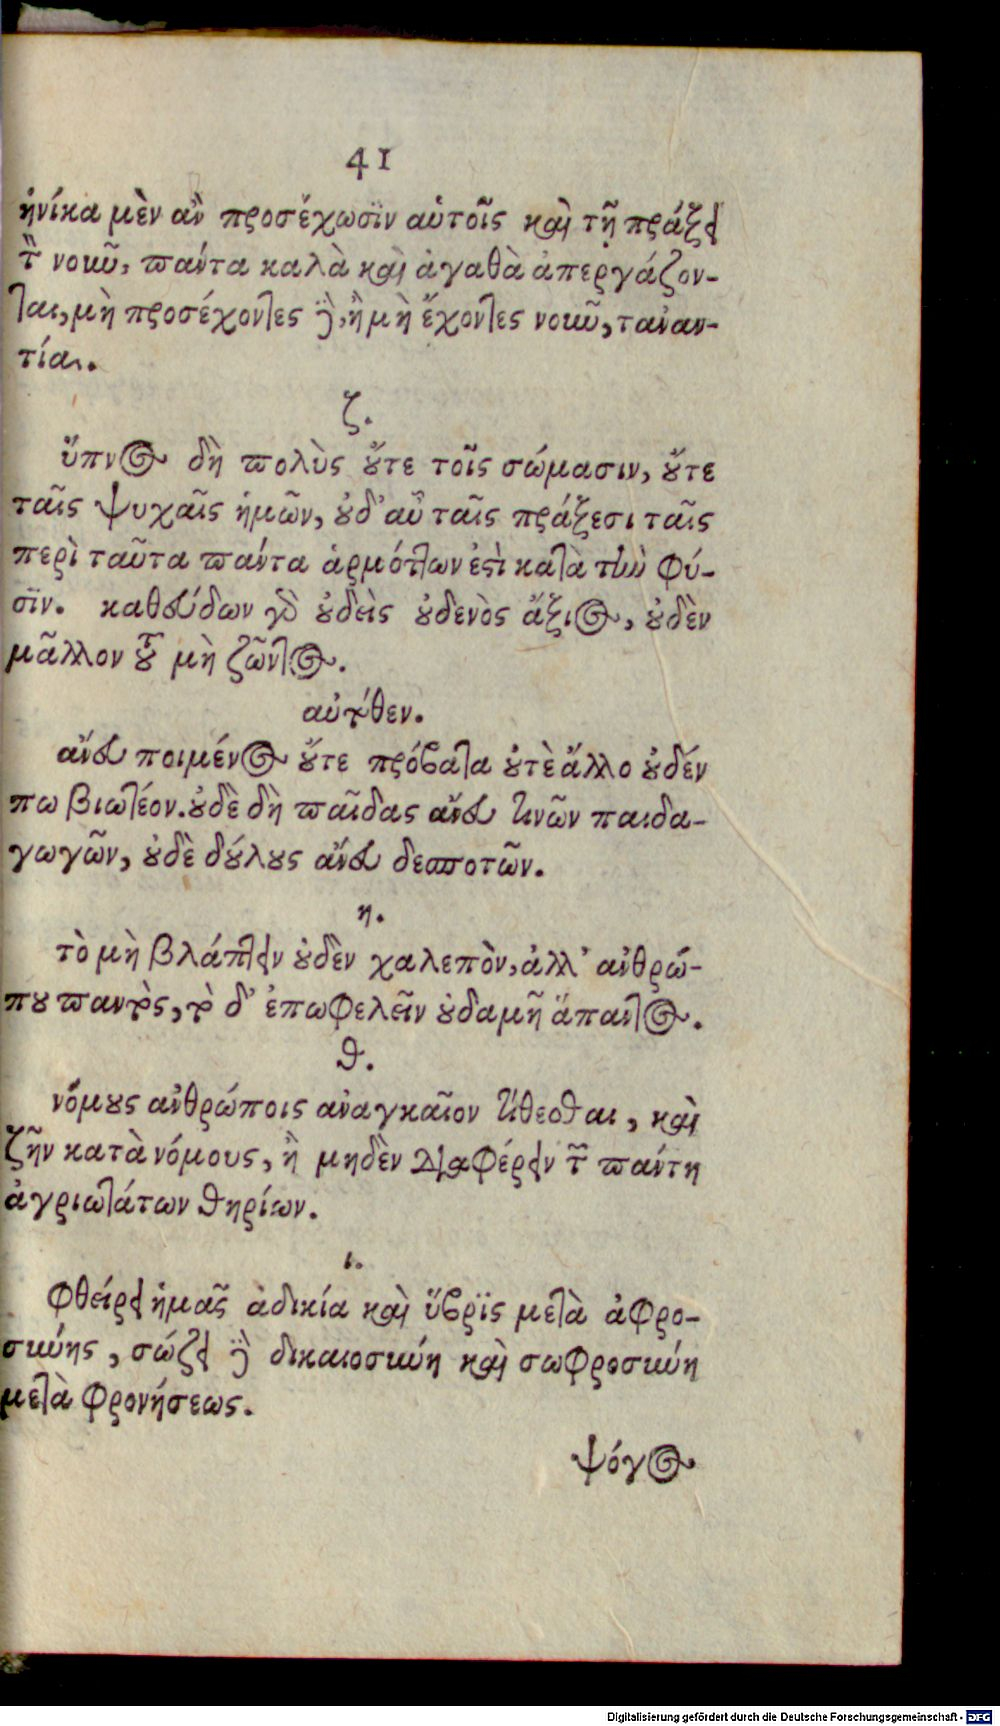 41
ἡνίκα μὲν ἂν προσέχωσϊν αὐτοῖς καὶ τῇ πράξει
τὸν νοῦν, πάντα καλὰ καὶ ἀγαθὰ ἀπεργάζον-
ται, μὴ προσέχοντες δὲ, ἢ μὴ ἔχοντες νοῦν, ταναν-
τία.
ζ.
ὕπνος δὴ πολὺς οὔτε τοῖς σώμασιν, οὔτε
ταῖς ψυχαῖς ἡμῶν, οὐδ' αὖ ταῖς πράξεσι ταῖς
περὶ ταῦτα πάντα ἁρμόττων ἐστὶ κατὰ τὴν φύ-
σϊν. καθεύδων γὰρ οὐδεὶς οὐδενὸς ἄξιος, οὐδὲν
μᾶλλον τοῦ μὴ ζῶντος.
αὐτόθεν.
ἄνευ ποιμένος οὔτε πρόβατα οὐτὲ ἄλλο οὐδέν
πω βιωτέον. οὐδὲ δὴ παῖδας ἄνευ τινῶν παιδα-
γωγῶν, οὐδὲ δούλους ἄνευ δεσποτῶν.
η.
τὸ μὴ βλάπτειν οὐδὲν χαλεπὸν, ἀλλ' ἀνθρώ-
που παντὸς, τὸ δ' ἐπωφελεῖν οὐδαμῆ ἅπαντος.
θ.
νόμους ἀνθρώποις ἀναγκαῖον τίθεσθαι, καὶ
ζῆν κατὰ νόμους, ἢ μηδὲν διαφέρειν τῶν πάντη
ἀγριωτάτων θηρίων.
ι.
φθείρει ἡμᾶς ἀδικία καὶ ὕβρϊς μετὰ ἀφρο-
σύνης, σώζει δὲ δικαιοσύνη καὶ σωφροσύνη
μετὰ φρονήσεως.
ψόγος
Digitalisierung gefördert durch die Deutsche Forschungsgemeinschaft - DFG